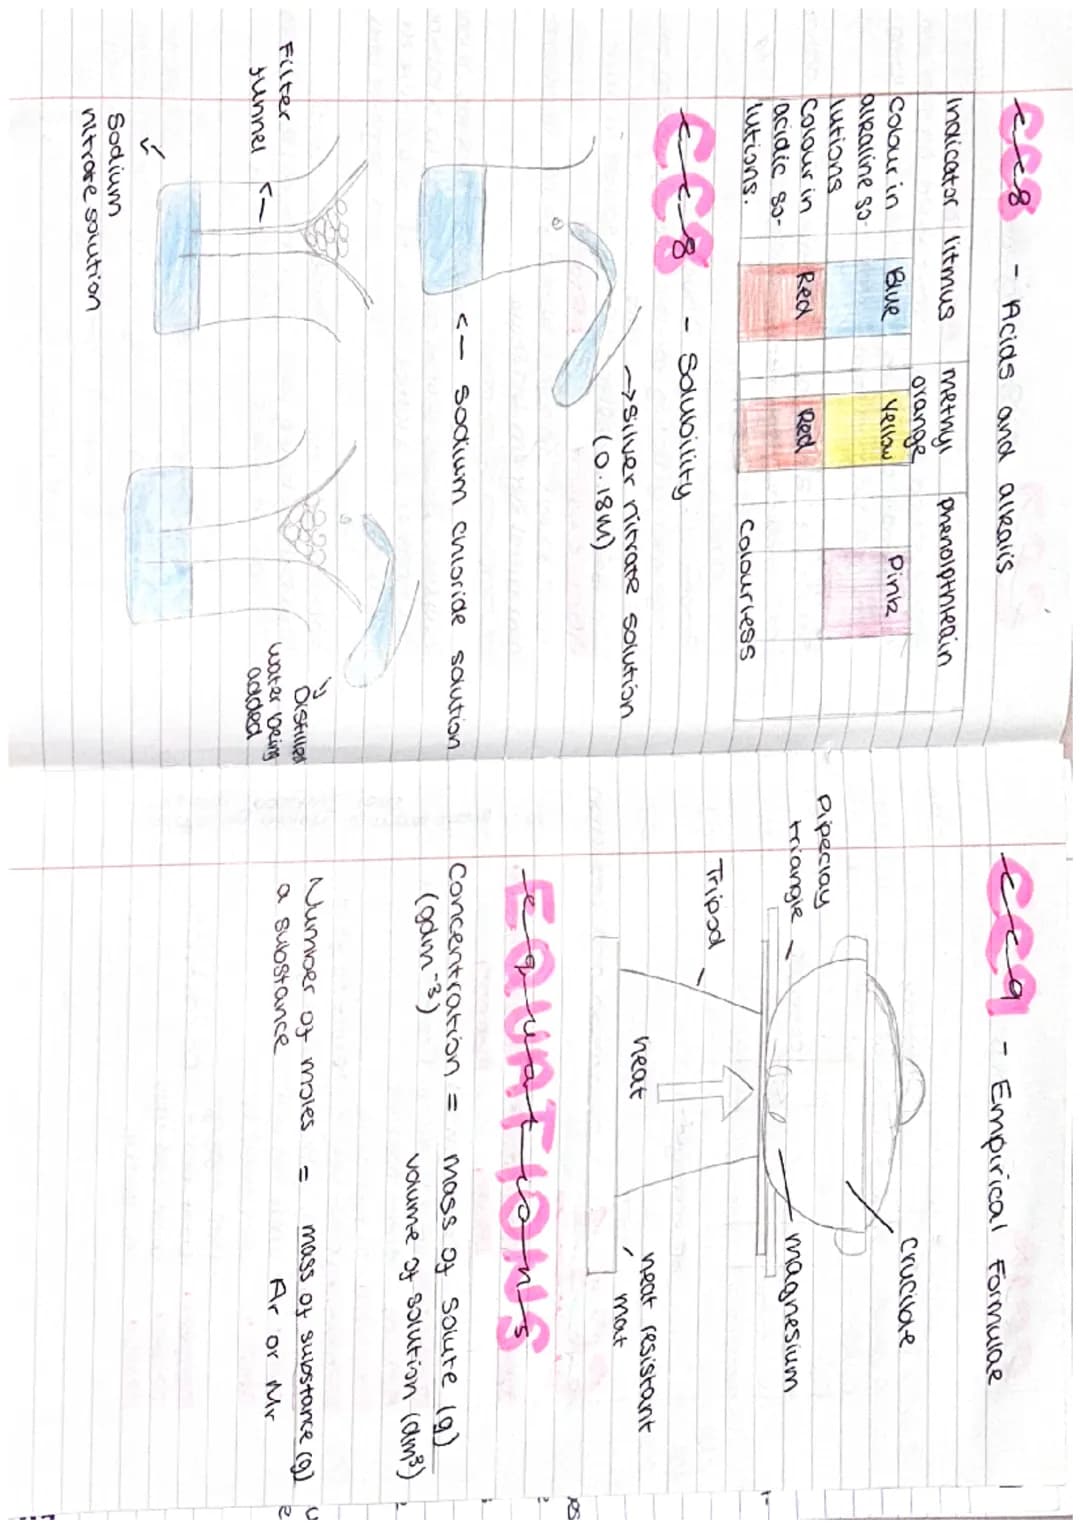 CC8 - Acids and alkalis
Indicator litmus methyl orange phenolpthlein
Colour in alkaline so-
lutions
Blue Yellow Pink
Colour in
acidic so-
lutions.
Red Red Colourless
CC8 - Solubility
→ Silver nitrate solution
(0.18M)
<— Sodium chloride solution
Filter
funnel
Distilled
water being
added
Sodium
nitrate solution
CC9 - Empirical Formulae
crucible
Pipeclay
triangle -
magnesium
Tripod
heat
heat resistant
mat
EQUATIONS
Concentration = mass of solute (g)
(gdm⁻³) volume of solution (dm³)
Number of moles = mass of substance (g)
a substance Ar or Mr